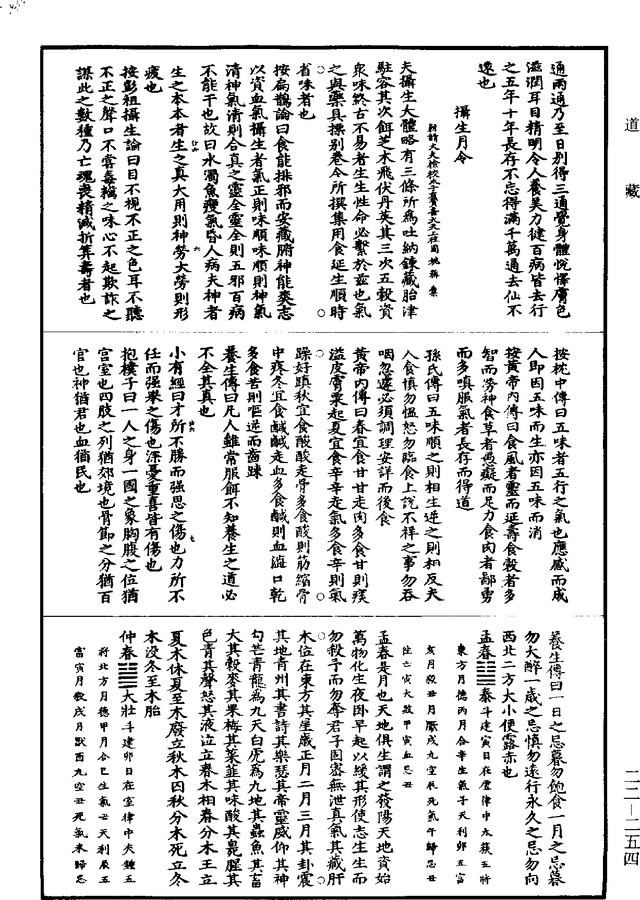 道藏
通兩通乃至日別得三通覺身體悅懌膚色
滋潤耳目精明令人養美力健百病皆去行
之五年十年長存不忘得滿千萬過去仙不
遠也
攝生月令
夫攝生大體略有三條所為吐納鍊藏胎津
駐容其次餌芝木飛伏丹英其三次五穀資
眾味終古不易者生生性命必繫於茲也氣
之與藥具摽別卷今所撰集用食延生順時
省味者也
按扁鵲論曰食能排邪而安藏腑神能爽志
以資血氣攝生者氣正則味順味順則神氣
清神氣清則合真之靈全靈全則五邪百病
不能干也故曰水濁魚瘦氣昏人病夫神者
生之本本者生之真大用則神勞大勞則形
疲也
按彭祖攝生論曰目不視不正之色耳不聽
不正之聲口不嘗毒糲之味心不起欺詐之
謀此之數種乃亡魂喪精減折筭壽者也
按枕中傳曰五味者五行之氣也應感而成
人即因五味而生亦因五味而消
按黃帝內傳曰食風者靈而延壽食穀者多
智而勞神食草者愚癡而足力食肉者鄙勇
而多嗔服氣者長存而得道
孫氏傳曰五味順之則相生逆之則相反夫
人食慎勿慍怒勿臨食上說不祥之事勿吞
咽忽遽必須調理安詳而後食
黃帝內傳曰春宜食甘甘走肉多食甘則痰
溢皮膚粟起夏宜食辛辛走氣多食辛則氣
躁好瞋秋宜食酸酸走骨多食酸則筋縮骨
中疼冬宜食鹹鹹走血多食鹹則血澁口乾
多食苦則嘔逆而齒踈
養生傳曰凡人雖常服餌不知養生之道必
不全其真也
小有經曰才所不勝而強思之傷也力所不
任而強舉之傷也深憂重喜皆有傷也
抱樸子曰一人之身一國之象胸腹之位猶
宮室也四肢之列猶郊境也骨節之分猶百
官也神猶君也血猶民也
養生傳曰一日之忌暮勿飽食一月之忌暮
勿大醉一歲之忌慎勿遠行永久之忌勿向
西北二方大小便露赤也
孟春䷊泰斗建寅日在虛律中太簇五將
東方月德丙月合辛生氣子天利卯五富
亥月殺丑月厭戌九空辰死氣午歸忌丑
往亡寅大敗甲寅血忌丑
孟春是月也天地俱生謂之發陽天地資始
萬物化生夜臥早起以緩其形使志生生而
勿殺予而勿奪君子固密無泄真氣其藏肝
木位在東方其星歲正月二月三月其卦震
其地青州其書詩其樂瑟其帝靈威仰其神
勾芒青龍為九天白虎為九地其蟲魚其畜
犬其穀麥其果梅其菜韭其味酸其臭腥其
色青其聲怒其液泣立春木相春分木王立
夏木休夏至木廢立秋木囚秋分木死立冬
木沒冬至木胎
仲春䷡大壯斗建卯日在室律中夾鍾五
將北方月德甲月合巳生氣丑天利辰五
富寅月殺戌月厭酉九空丑死氣未歸忌
二二—二五四